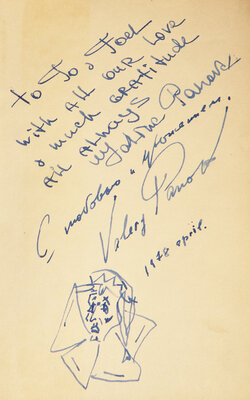 to Jo & Joel
with All our love
& much gratitude
As Always
Galina Panova
С любовью и почтением.
Valery Panov
1978 april.